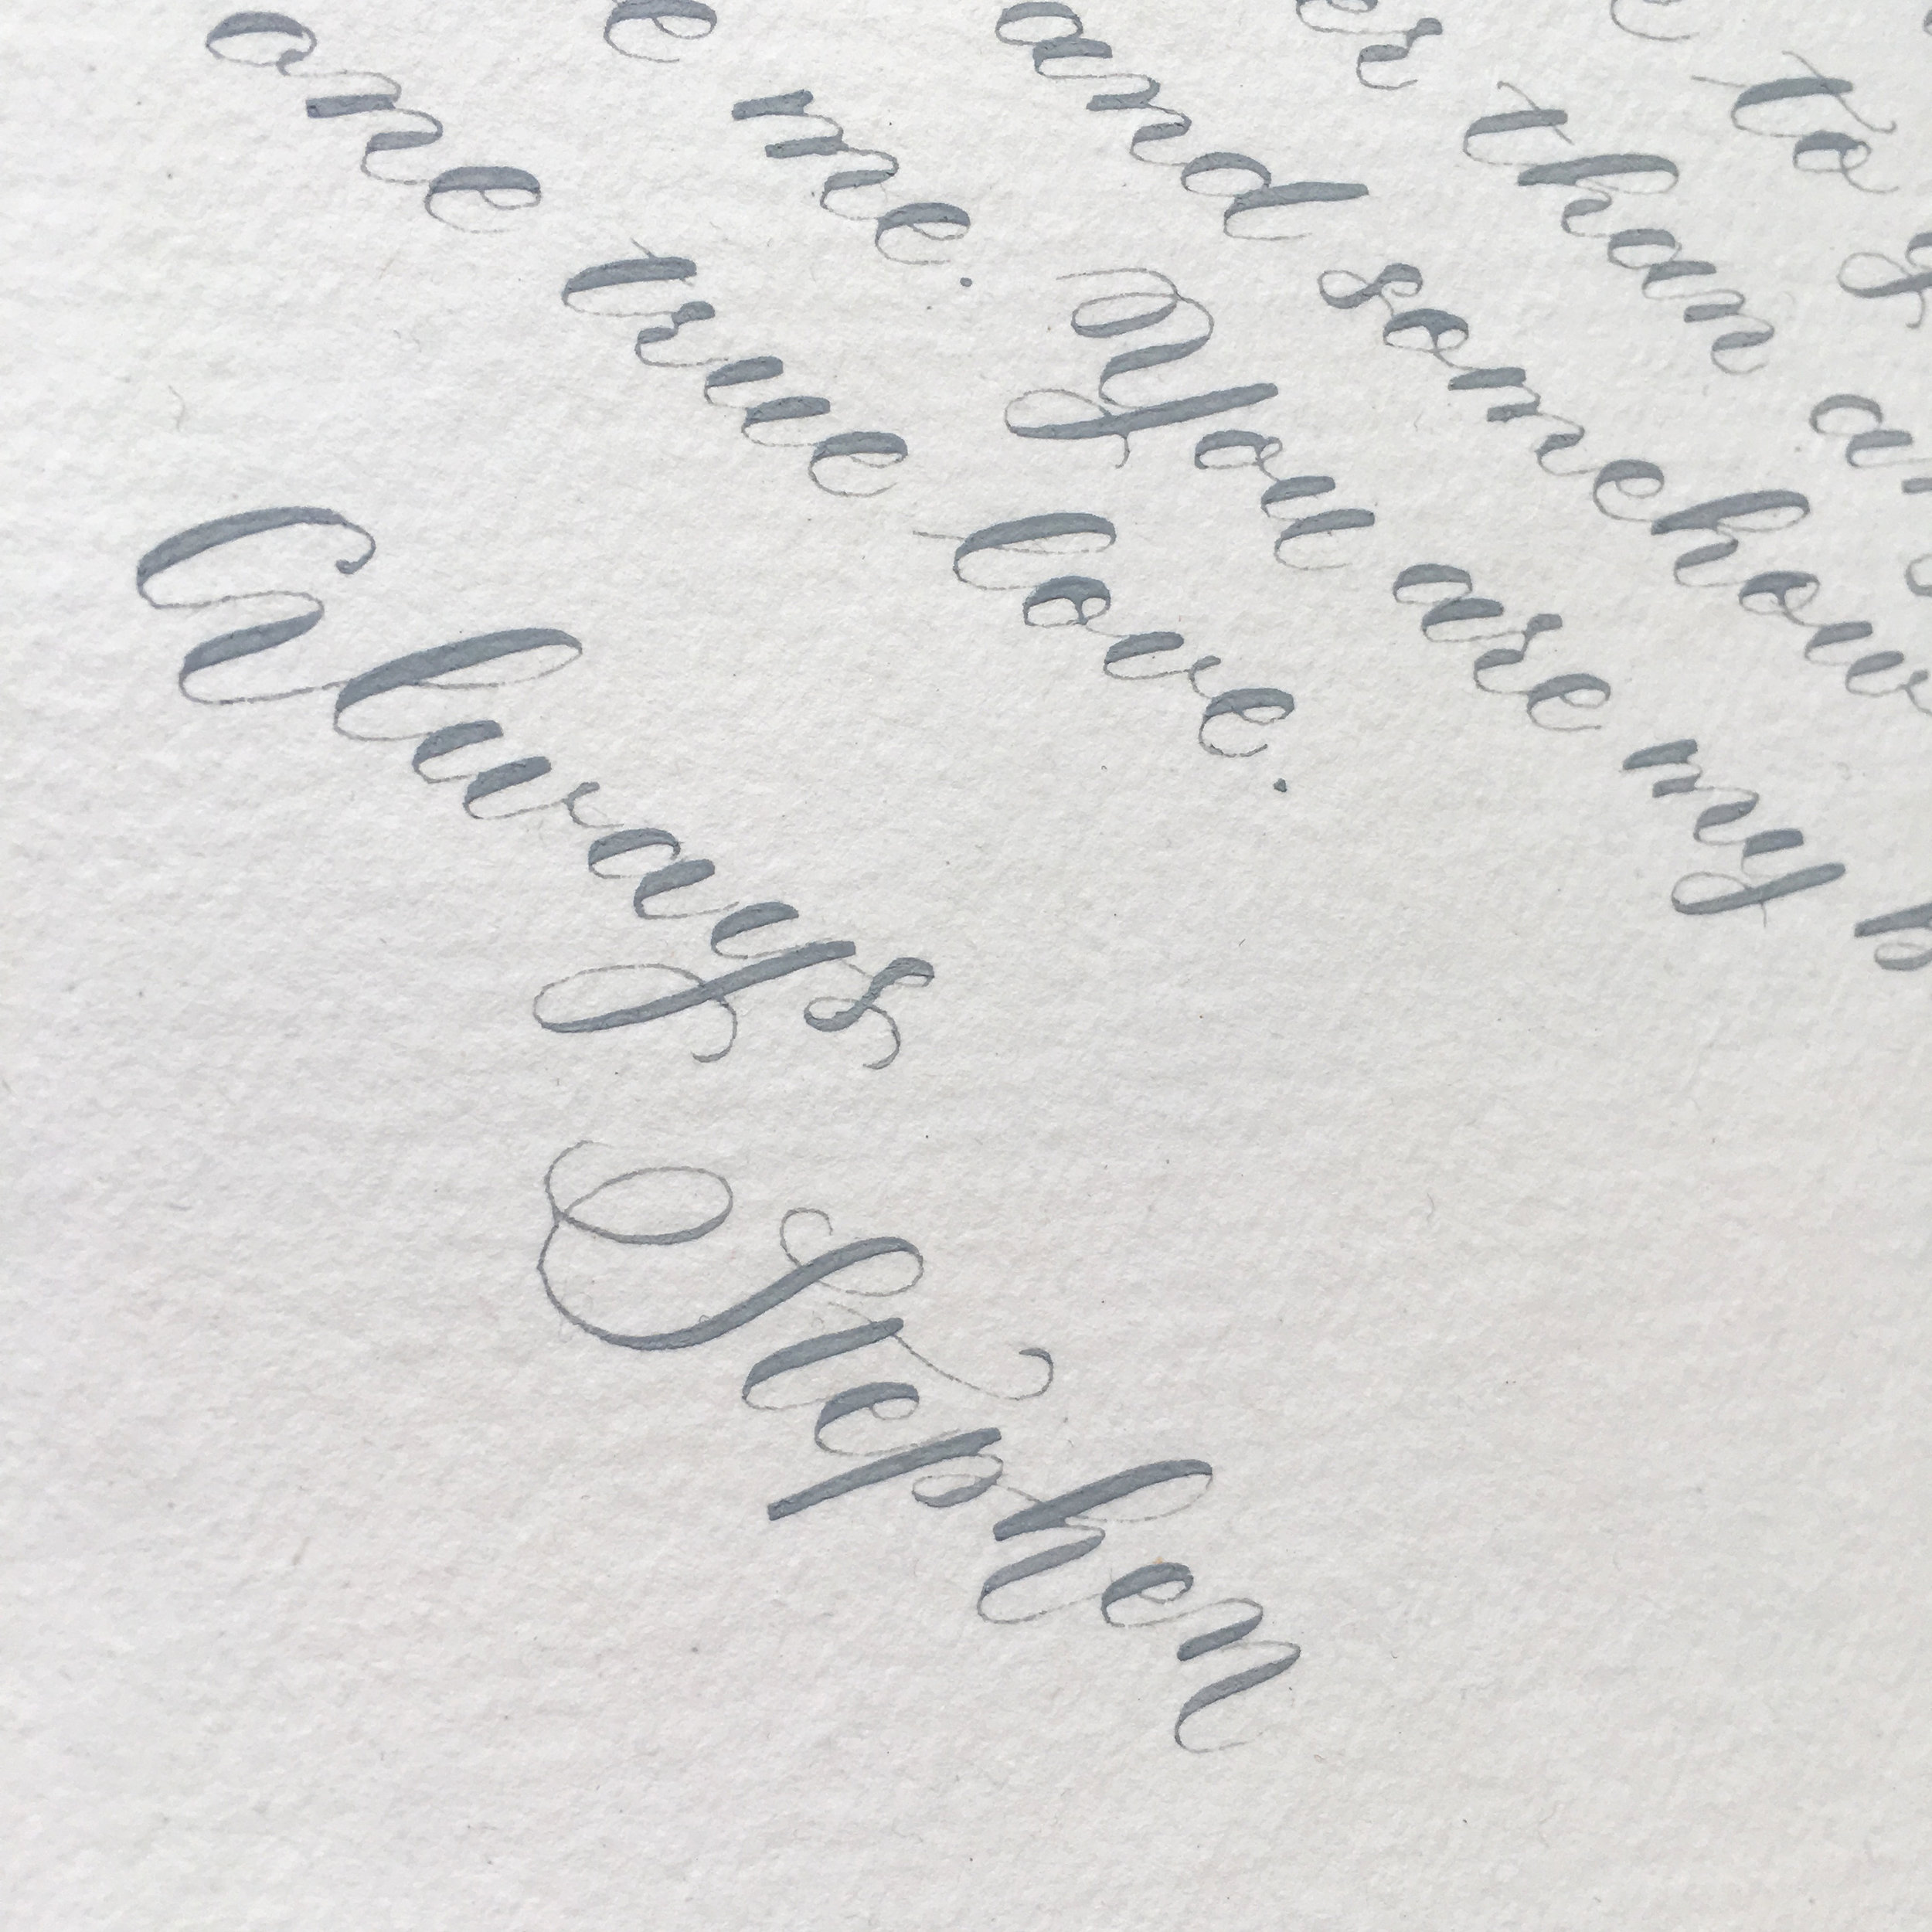 to
than
and somehow
me. You are my
one true love.
Always
Stephen